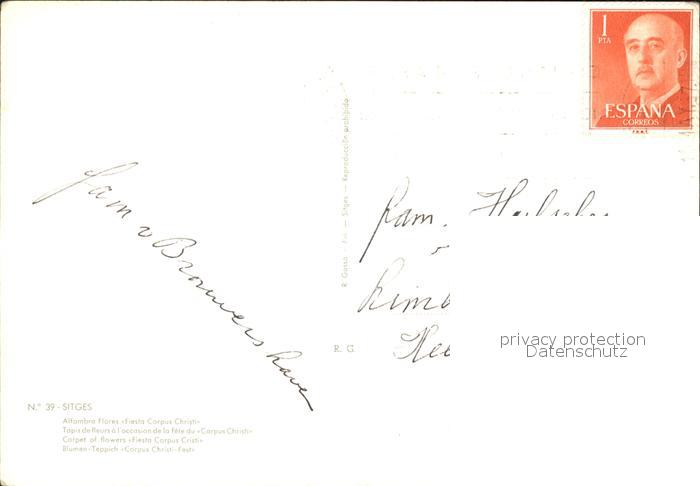 1
PTA
ESPAÑA
CORREOS
F.N.M.T.
Fam v Brouwershave
Fam.
R. G.
R. Gasso - Fot. - Sitges - Reproducción prohibida
privacy protection
Datenschutz
N.º 39 - SITGES
Alfombra Flores «Fiesta Corpus Christi»
Tapis de fleurs à l'occasion de la fête du «Corpus Christi»
Carpet of flowers «Fiesta Corpus Cristi»
Blumen-Teppich «Corpus Christi-Fest»